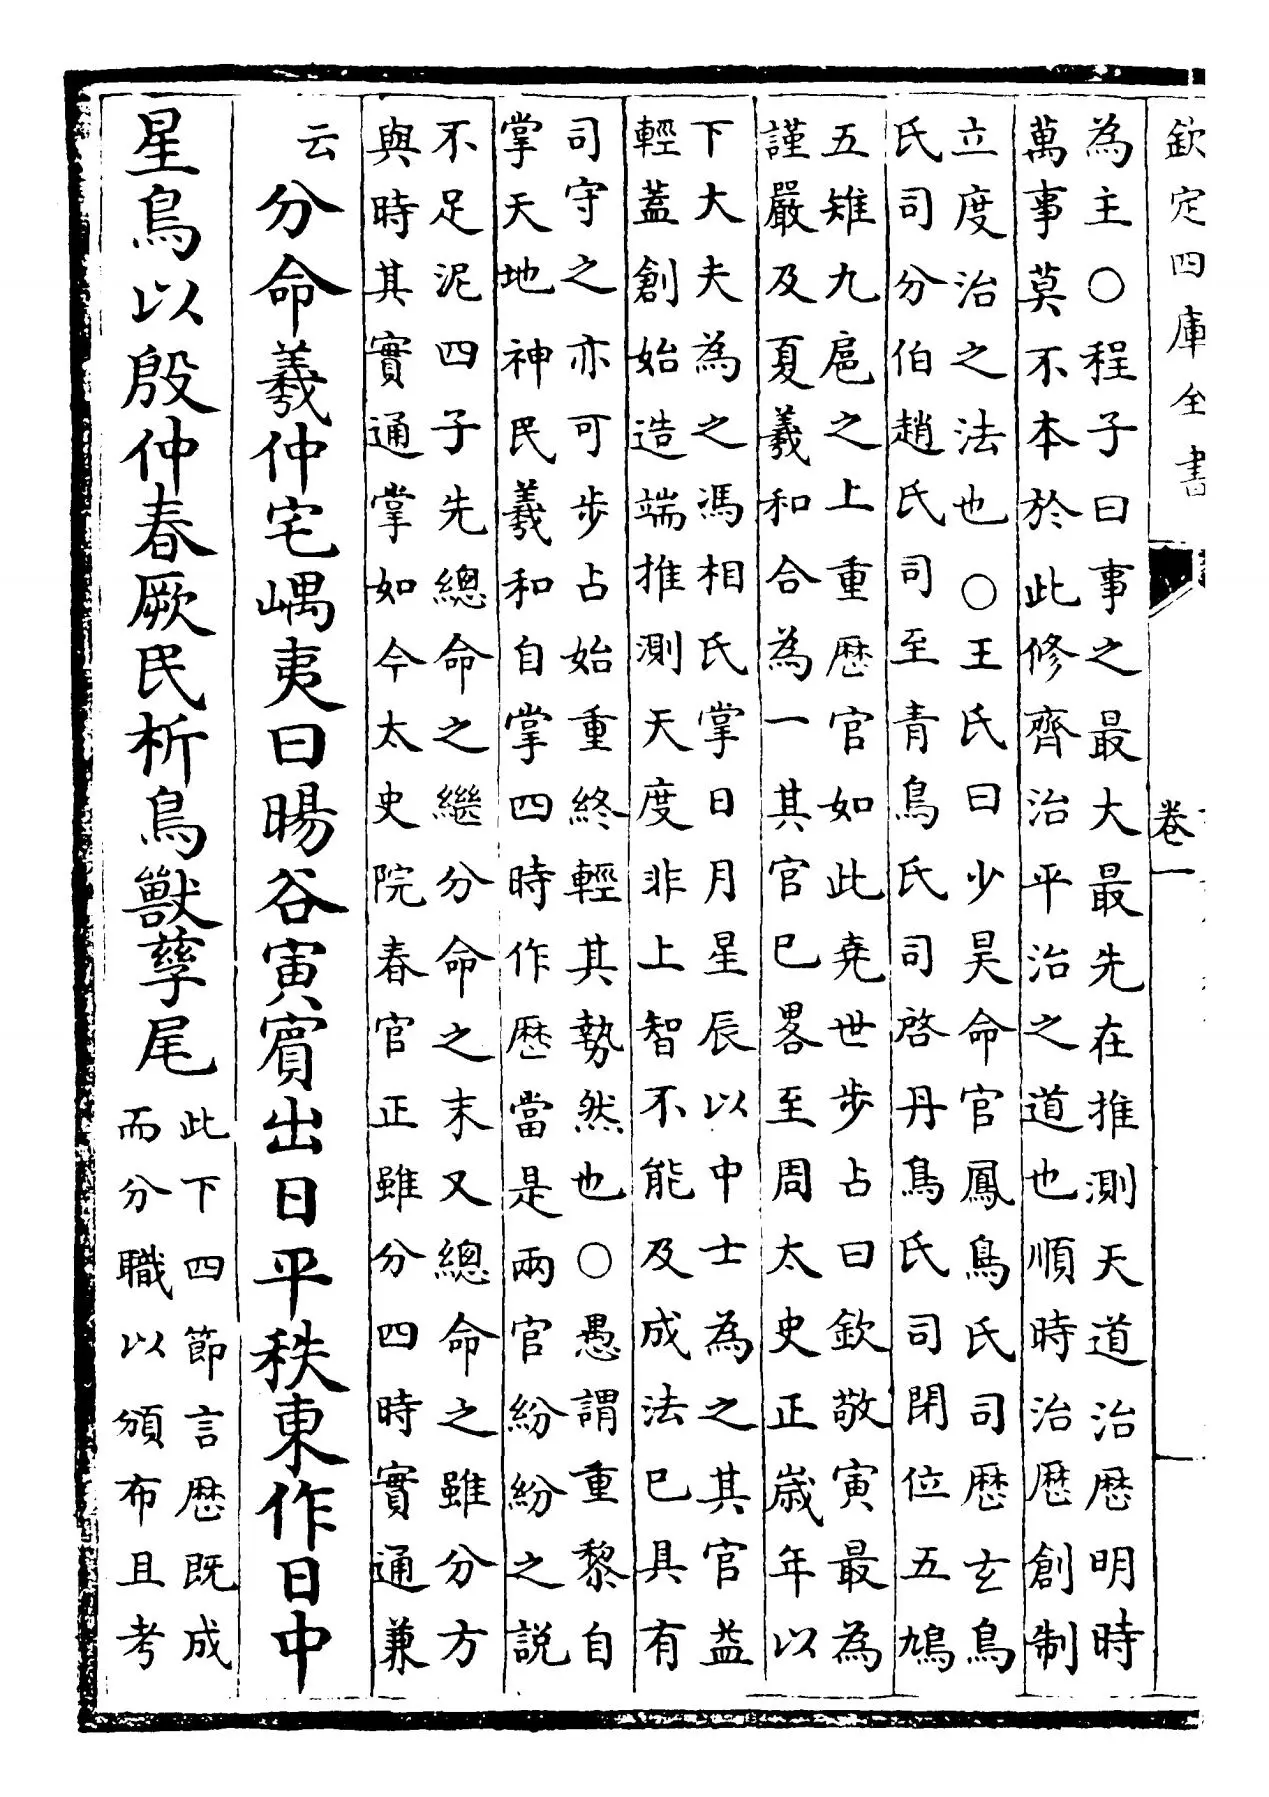 欽定四庫全書
卷一
為主○程子曰事之最大最先在推測天道治歴明時
萬事莫不本於此修齊治平治之道也順時治歴創制
立度治之法也○王氏曰少昊命官鳳鳥氏司歴玄鳥
氏司分伯趙氏司至青鳥氏司啓丹鳥氏司閉位五鳩
五雉九扈之上重歴官如此堯世步占曰欽敬寅最為
謹嚴及夏羲和合為一其官已畧至周太史正歳年以
下大夫為之馮相氏掌日月星辰以中士為之其官益
輕蓋創始造端推測天度非上智不能及成法已具有
司守之亦可步占始重終輕其勢然也○愚謂重黎自
掌天地神民羲和自掌四時作歴當是兩官紛紛之說
不足泥四子先總命之繼分命之末又總命之雖分方
與時其實通掌如今太史院春官正雖分四時實通兼
云
分命羲仲宅嵎夷曰暘谷寅賓出日平秩東作日中
星鳥以殷仲春厥民析鳥獸孳尾
此下四節言歴既成
而分職以頒布且考